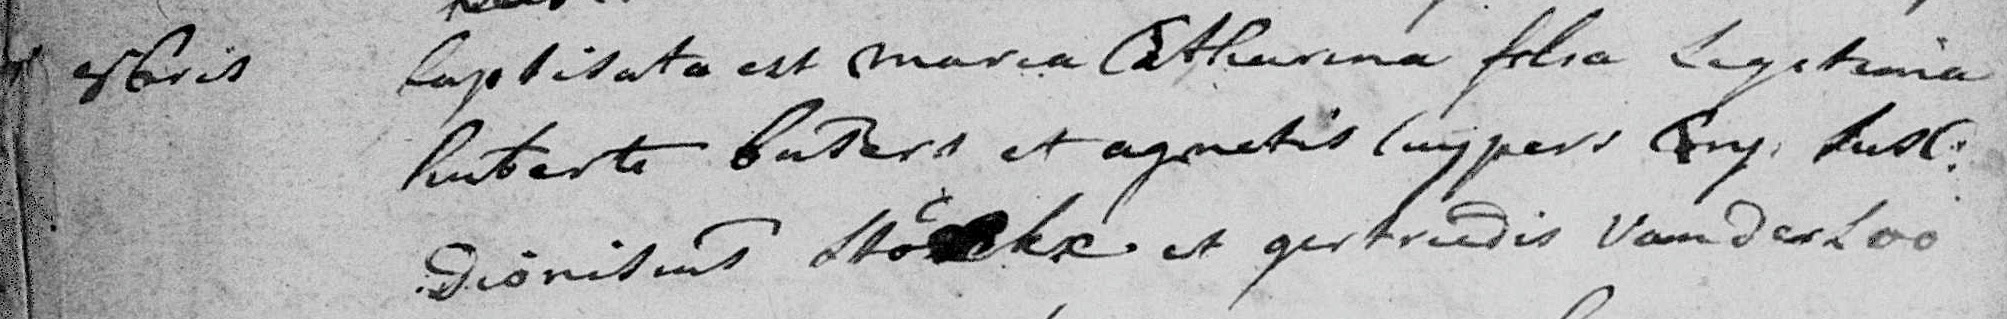 baptisata est maria Catharina filia Legitima
huberti buters et agnetis Cuypers Conj. Susc:
Dionisius et gertrudis Van der Loo